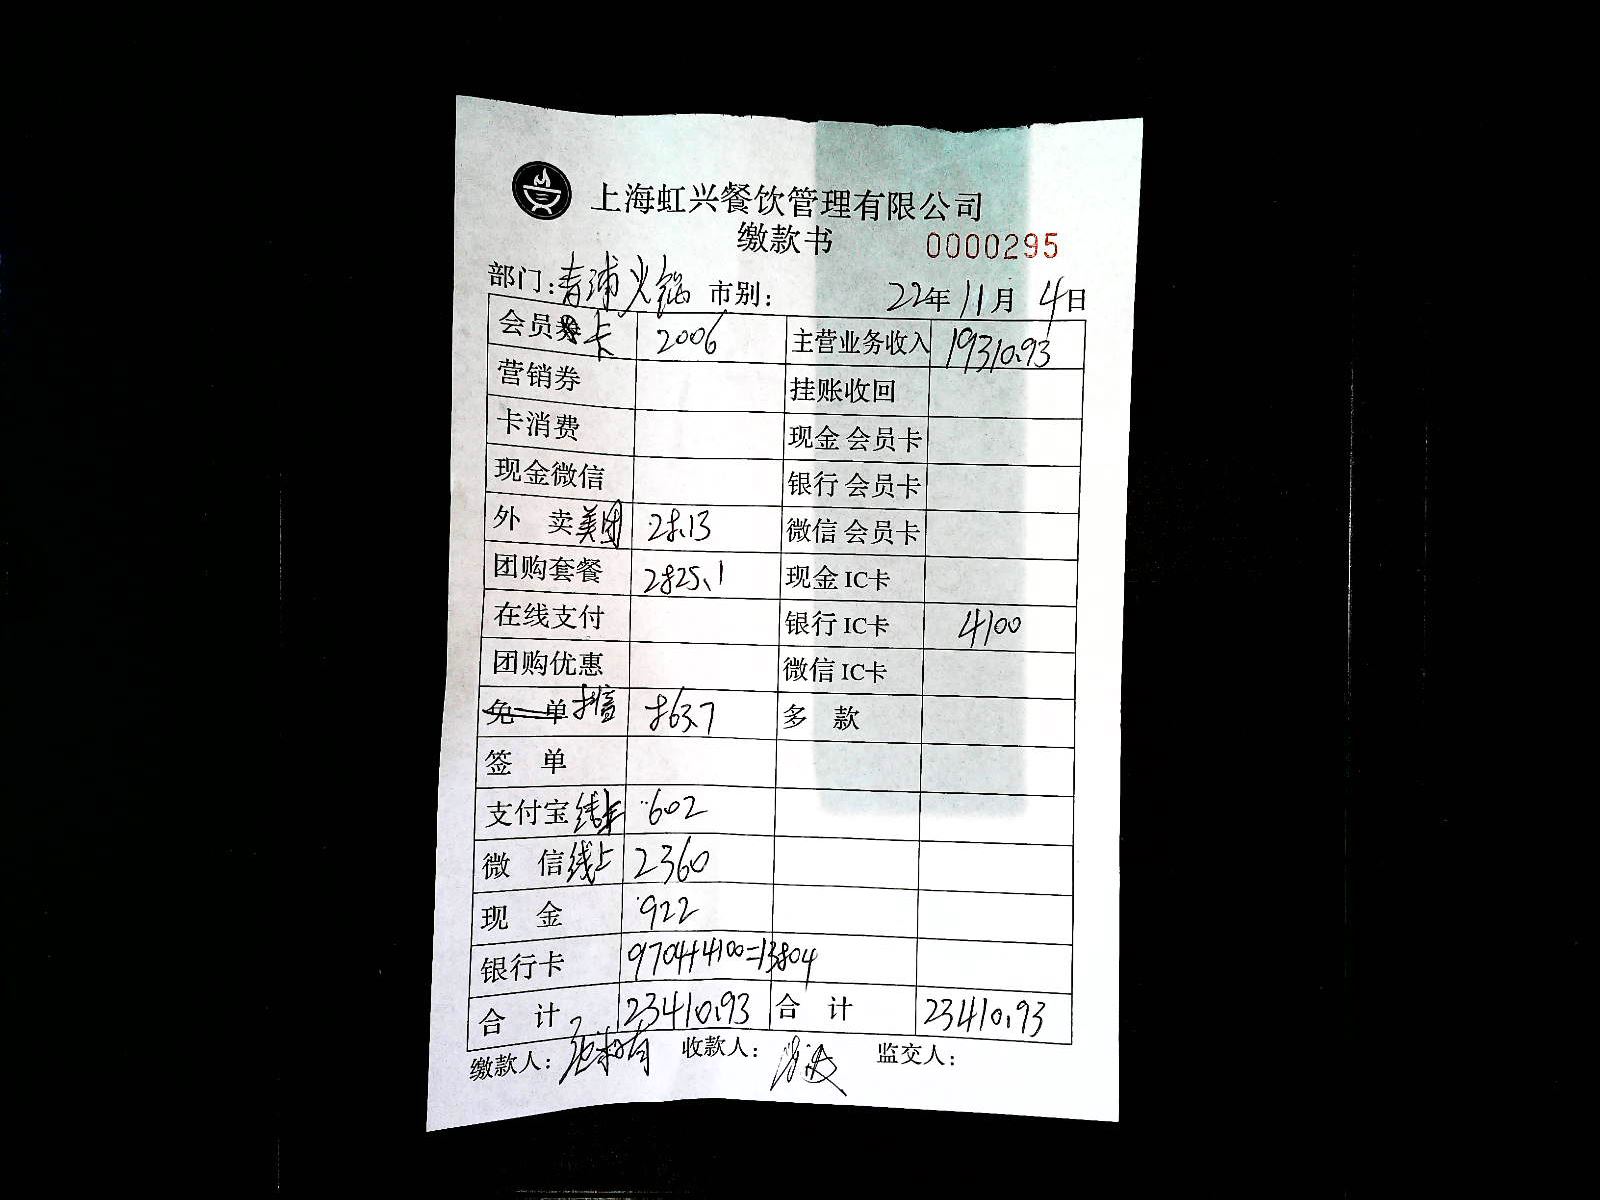 上海虹兴餐饮管理有限公司
缴款书 0000295
部门:青浦火锅 市别: 22年11月4日
会员卡 2006 主营业务收入 19310.93
营销券 挂账收回
卡消费 现金会员卡
现金微信 银行会员卡
外卖美团 28.13 微信会员卡
团购套餐 2825.1 现金IC卡
在线支付 银行IC卡 4100
团购优惠 微信IC卡
免单抖音 863.7 多款
签单
支付宝 602
微信线上 2360
现金 922
银行卡 9704+4100=13804
合计 23410.93 合计 23410.93
缴款人: 收款人: 监交人: